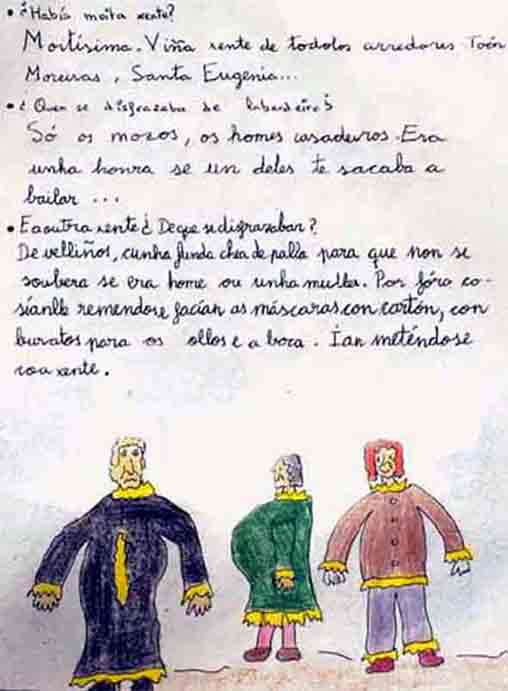 • ¿Había moita xente?
Moitísima. Viña xente de todolos arredores Toén
Moreiras, Santa Eugenia...
• ¿Quen se disfrazaba de labardeiro?
Só os mozos, os homes casadeiros. Era
unha honra se un deles te sacaba a
bailar ...
• E a outra xente ¿ De que se disfrazaban?
De velliños, cunha funda chea de palla para que non se
soubera se era home ou unha muller. Por fóra co-
síanlle remendos e facían as máscaras con cartón, con
buratos para os ollos e a boca. Ían meténdose
coa xente.